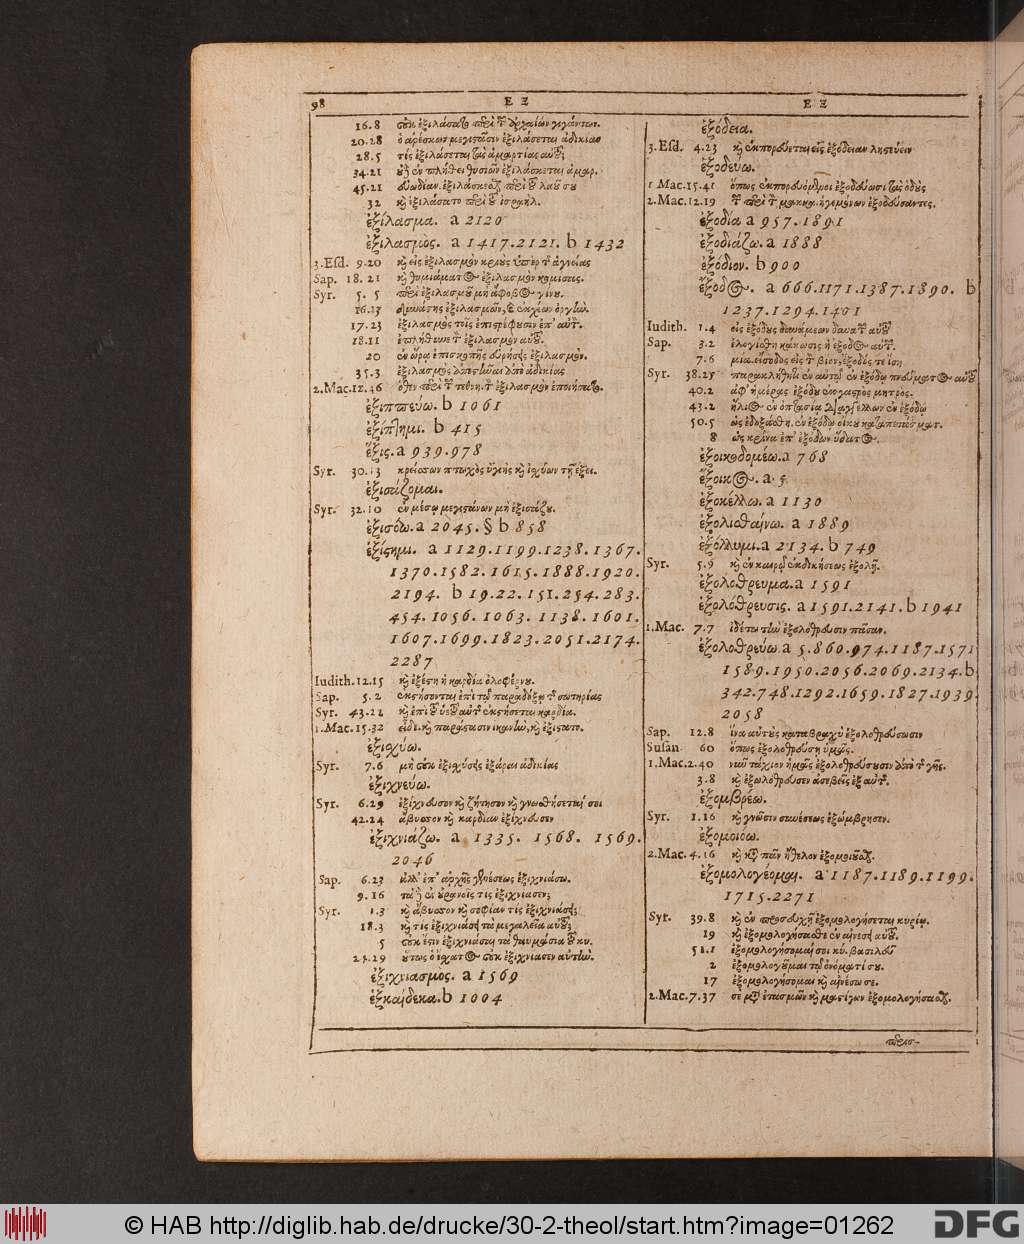 98 Ε Ξ Ε Ξ
16.8 οὐκ ἐξιλάσατο περὶ τῶν ἀρχαίων γιγάντων.
20.28 ὁ ἀρέσκων μεγιστᾶσιν ἐξιλάσεται ἀδικίαν
28.5 τίς ἐξιλάσεται τὰς ἁμαρτίας αὐτοῦ;
34.21 οὐδὲ ἐν πλήθει θυσιῶν ἐξιλάσκεται ἁμαρ.
45.21 εὐωδίαν. ἐξιλάσκεσθαι περὶ τοῦ λαοῦ σου
32 καὶ ἐξιλάσατο περὶ τοῦ ἰσραήλ.
ἐξίλασμα. a 2120
ἐξιλασμός. a 1417.2121. b 1432
3.Esd. 9.20 καὶ εἰς ἐξιλασμὸν κριοὺς ὑπὲρ τῆς ἀγνοίας
Sap. 18.21 καὶ θυμιάματος ἐξιλασμὸν κομίσας.
Syr. 5.5 περὶ ἐξιλασμοῦ μὴ ἄφοβος γίνου.
16.13 δυνάστης ἐξιλασμῶν, καὶ ἐκχέων ὀργήν.
17.23 ἐξιλασμὸς τοῖς ἐπιστρέφουσιν ἐπ' αὐτ.
18.11 ἐπλήθυνε τὸν ἐξιλασμὸν αὐτοῦ.
20 ἐν ὥρᾳ ἐπισκοπῆς εὑρήσεις ἐξιλασμόν.
35.3 ἐξιλασμὸς ἀποστῆναι ἀπὸ ἀδικίας
2.Mac.12.46 ὅθεν περὶ τῶν τεθνη. τὸν ἐξιλασμὸν ἐποιήσατο.
ἐξιππεύω. b 1061
ἐξίπτημι. b 415
ἕξις. a 939.978
Syr. 30.13 κρείσσων πτωχὸς ὑγιὴς καὶ ἰσχύων τῇ ἕξει.
ἐξισάζομαι.
Syr. 32.10 ἐν μέσῳ μεγιστάνων μὴ ἐξισάζου.
ἐξισόω. a 2045. § b 858
ἐξίστημι. a 1129.1199.1238.1367.
1370.1582.1615.1888.1920.
2194. b 19.22.151.254.283.
454.1056.1063.1138.1601.
1607.1699.1823.2051.2174.
2287
Iudith.12.15 καὶ ἐξέστη ἡ καρδία ὀλοφέρνου.
Sap. 5.2 ἐκστήσονται ἐπὶ τῷ παραδόξῳ τῆς σωτηρίας
Syr. 43.21 καὶ ἐπὶ τοῦ ὑετοῦ αὐτ. ἐκστήσεται καρδία.
1.Mac.15.32 εἶδε. καὶ παράστασιν ἱκανὴν, καὶ ἐξίστατο.
ἐξισχύω.
Syr. 7.6 μὴ οὐκ ἐξισχύσῃς ἐξᾶραι ἀδικίας
ἐξιχνεύω.
Syr. 6.29 ἐξίχνευσον καὶ ζήτησον καὶ γνωσθήσεταί σοι
42.24 ἄβυσσον καὶ καρδίαν ἐξίχνευσεν
ἐξιχνιάζω. a 1335. 1568. 1569.
2046
Sap. 6.23 ἀλλ' ἐπ' ἀρχῆς γενέσεως ἐξιχνιάσω.
9.16 τὰ δὲ ἐν οὐρανοῖς τίς ἐξιχνίασεν;
Syr. 1.3 καὶ ἄβυσσον καὶ σοφίαν τίς ἐξιχνιάσει;
18.3 καὶ τίς ἐξιχνιάσει τὰ μεγαλεῖα αὐτοῦ;
5 οὐκ ἔστιν ἐξιχνιάσαι τὰ θαυμάσια τοῦ κυ.
ὁ ἔσχατος οὐκ ἐξιχνίασεν αὐτήν.
ἐξιχνιασμός. a 1569
ἑξκαίδεκα. b 1004
ἐξόδεια.
3.Esd. 4.23 καὶ ἐκπορεύεται εἰς ἐξόδειαν λῃστεύειν
ἐξοδεύω.
1.Mac.15.41 ὅπως ἐκπορευόμενοι ἐξοδεύωσι τὰς ὁδοὺς
2.Mac.12.19 ἡγεμόνων ἐξοδεύσαντες.
ἐξοδία a 957.1891
ἐξοδιάζω. a 1888
ἐξόδιον. b 900
ἔξοδος. a 666.1171.1387.1890. b
1237.1294.1401
Iudith. 1.4 εἰς ἐξόδους δυνάμεων δυνατ. αὐτοῦ
Sap. 3.2 ἐλογίσθη κάκωσις ἡ ἔξοδος αὐτ.
7.6 μία. εἴσοδος εἰς τὸν βίον, ἔξοδός τε ἴση
Syr. 38.25 παρακλήθητι ἐν αὐτῷ ἐν ἐξόδῳ πνεύματος αὐτοῦ
40.2 ἀφ' ἡμέρας ἐξόδου ἐκ γαστρὸς μητρός.
43.2 ἥλιος ἐν ὀπτασίᾳ διαγγέλλων ἐν ἐξόδῳ
50.5 ὡς ἐδοξάσθη. ἐν ἐξόδῳ οἴκου καταπετάσματ.
8 ὡς κρίνα ἐπ' ἐξόδων ὕδατος.
ἐξοικοδομέω. a 768
ἔξοικος. a 5
ἐξοκέλλω. a 1130
ἐξολισθαίνω. a 1889
ἐξόλλυμι. a 2134. b 749
Syr. 5.9 καὶ ἐν καιρῷ ἐκδικήσεως ἐξολῇ.
ἐξολόθρευμα. a 1591
ἐξολόθρευσις. a 1591.2141. b 1941
1.Mac. 7.7 ἰδέτω τὴν ἐξολόθρευσιν πᾶσαν.
ἐξολοθρεύω. a 5.860.974.1187.1571
1589.1950.2056.2069.2134. b
342.748.1292.1659.1827.1939.
2058
Sap. 12.8 ἵνα αὐτοὺς καταβραχὺ ἐξολοθρεύσωσιν
Susan 60 ὅπως ἐξολοθρεύσῃ ὑμᾶς.
1.Mac.2.40 νῦν τάχιον ἡμᾶς ἐξολοθρεύσουσιν ἀπὸ τῆς γῆς.
3.8 καὶ ἐξωλόθρευσεν ἀσεβεῖς ἐξ αὐτῆς.
ἐξομβρέω.
Syr. 1.16 καὶ γνῶσιν συνέσεως ἐξώμβρησεν.
ἐξομοιόω.
2.Mac. 4.16 καὶ καθ' πᾶν ἤθελον ἐξομοιοῦσθαι.
ἐξομολογέομαι. a 1187.1189.1199.
1715.2271
Syr. 39.8 καὶ ἐν προσευχῇ ἐξομολογήσεται κυρίῳ.
19 καὶ ἐξομολογήσασθε ἐν αἰνέσει αὐτοῦ.
51.1 ἐξομολογήσομαί σοι κύ. βασιλεῦ
2 ἐξομολογοῦμαι τῷ ὀνόματί σου.
17 ἐξομολογήσομαι καὶ αἰνέσω σε.
2.Mac.7.37 σε μετὰ ἐτασμῶν καὶ μαστίγων ἐξομολογήσασθαι.
© HAB http://diglib.hab.de/drucke/30-2-theol/start.htm?image=01262
DFG